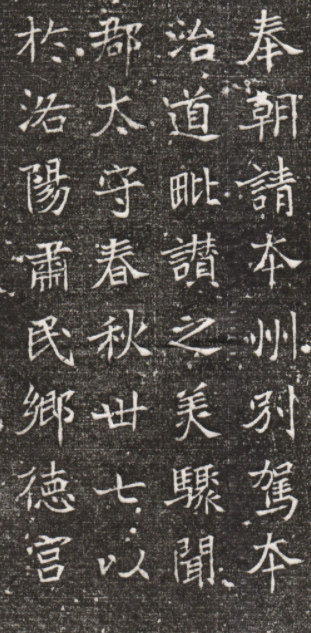 奉朝請本州別駕本
治道毗讃之美驟聞
郡太守春秋卌七以
於洛陽肅民鄉德宮